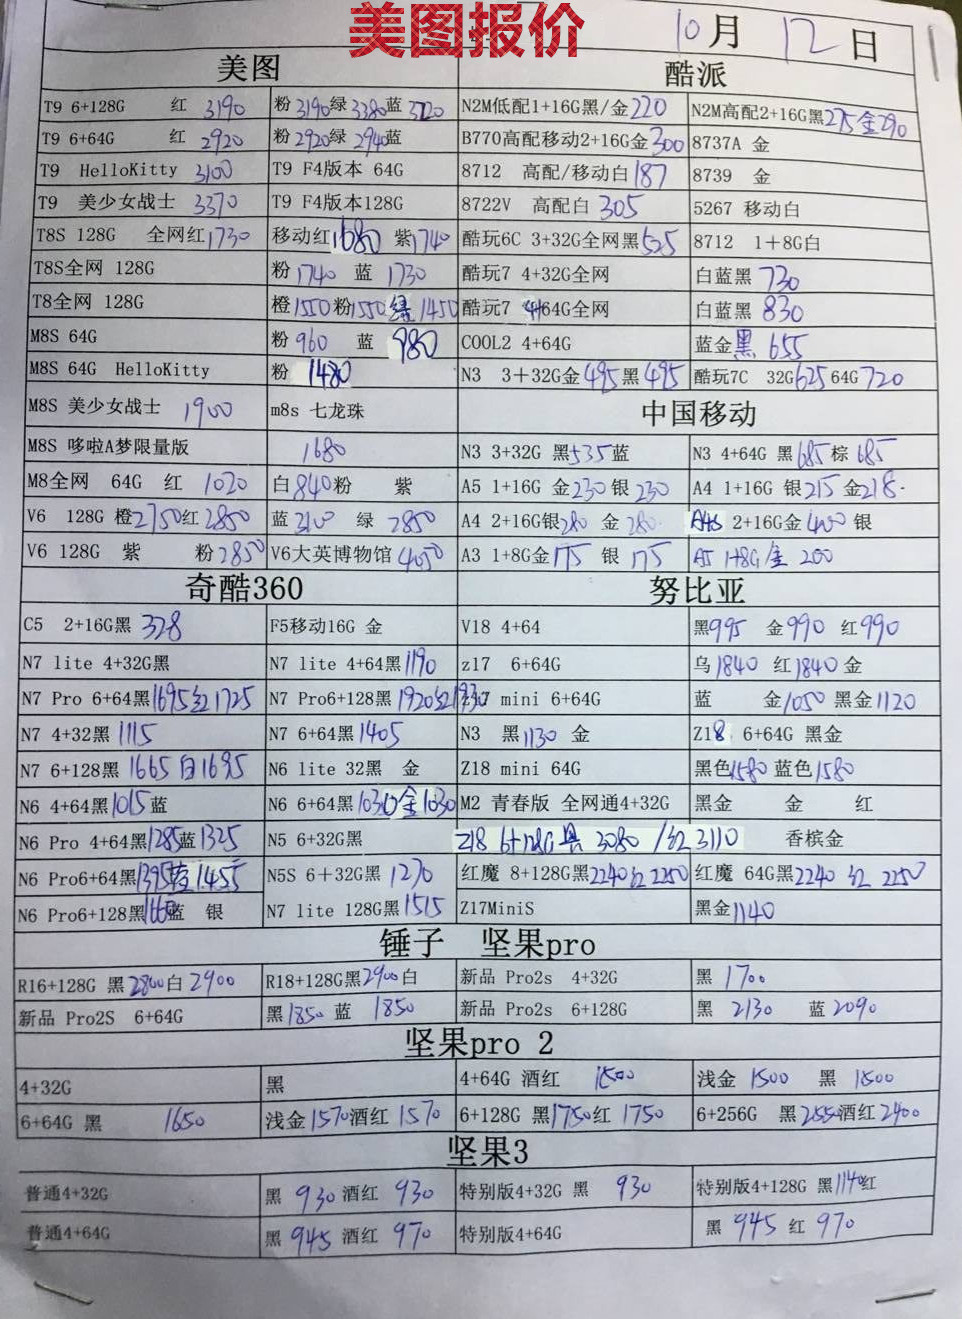 美图报价
10月 12日
美图 酷派
T9 6+128G 红 3190 粉 3190 绿 3380 蓝 N2M低配1+16G黑/金 220 N2M高配2+16G黑 275 金 290
T9 6+64G 红 2920 粉 2920 绿 2940 蓝 B770高配移动2+16G金 300 8737A 金
T9 HelloKitty 3100 T9 F4版本 64G 8712 高配/移动白 187 8739 金
T9 美少女战士 3370 T9 F4版本128G 8722V 高配白 305 5267 移动白
T8S 128G 全网红 1730 移动红 1680 紫 1740 酷玩6C 3+32G全网黑 525 8712 1+8G白
T8S全网 128G 粉 1740 蓝 1730 酷玩7 4+32G全网 白蓝黑 730
T8全网 128G 橙 1550 粉 1550 绿 1450 酷玩7 4+64G全网 白蓝黑 830
M8S 64G 粉 960 蓝 980 COOL2 4+64G 蓝金黑 655
M8S 64G HelloKitty 粉 1480 N3 3+32G金 495 黑 495 酷玩7C 32G 625 64G 720
M8S 美少女战士 1900 m8s 七龙珠 中国移动
M8S 哆啦A梦限量版 1680 N3 3+32G 黑 535 蓝 N3 4+64G 黑 685 棕 685
M8全网 64G 红 1020 白 840 粉 紫 A5 1+16G 金 230 银 230 A4 1+16G 银 215 金 218
V6 128G 橙 2750 红 2850 蓝 2100 绿 2850 A4 2+16G银 280 金 280 A4s 2+16G金 400 银
V6 128G 紫 粉 2850 V6大英博物馆 4050 A3 1+8G金 175 银 175 A5 1+8G/金 200
奇酷360 努比亚
C5 2+16G黑 328 F5移动16G 金 V18 4+64 黑 995 金 990 红 990
N7 lite 4+32G黑 N7 lite 4+64黑 1190 z17 6+64G 乌 1840 红 1840 金
N7 Pro 6+64黑 1695 红 1725 N7 Pro6+128黑 1920 红 1930 mini 6+64G 蓝 金 1050 黑金 1120
N7 4+32黑 1115 N7 6+64黑 1405 N3 黑 1130 金 Z18 6+64G 黑金
N7 6+128黑 1665 白 1695 N6 lite 32黑 金 Z18 mini 64G 黑色 1580 蓝色 1580
N6 4+64黑 1015 蓝 N6 6+64黑 1030 金 1030 M2 青春版 全网通4+32G 黑金 金 红
N6 Pro 4+64黑 1285 蓝 1325 N5 6+32G黑 Z18 6+128G 黑 3080 /红 3110 香槟金
N6 Pro6+64黑 1395 蓝 1455 N5S 6+32G黑 1270 红魔 8+128G黑 2240 红 2250 红魔 64G黑 2240 红 2250
N6 Pro6+128黑 1660 蓝 银 N7 lite 128G黑 1515 Z17MiniS 黑金 1140
锤子 坚果pro
R16+128G 黑 2800 白 2900 R18+128G黑 2900 白 新品 Pro2s 4+32G 黑 1700
新品 Pro2S 6+64G 黑 1850 蓝 1850 新品 Pro2s 6+128G 黑 2130 蓝 2090
坚果pro 2
4+32G 黑 4+64G 酒红 1500 浅金 1500 黑 1500
6+64G 黑 1650 浅金 1570 酒红 1570 6+128G 黑 1750 红 1750 6+256G 黑 2550 酒红 2400
坚果3
普通4+32G 黑 930 酒红 930 特别版4+32G 黑 930 特别版4+128G 黑 1140 红
普通4+64G 黑 945 酒红 970 特别版4+64G 黑 945 红 970